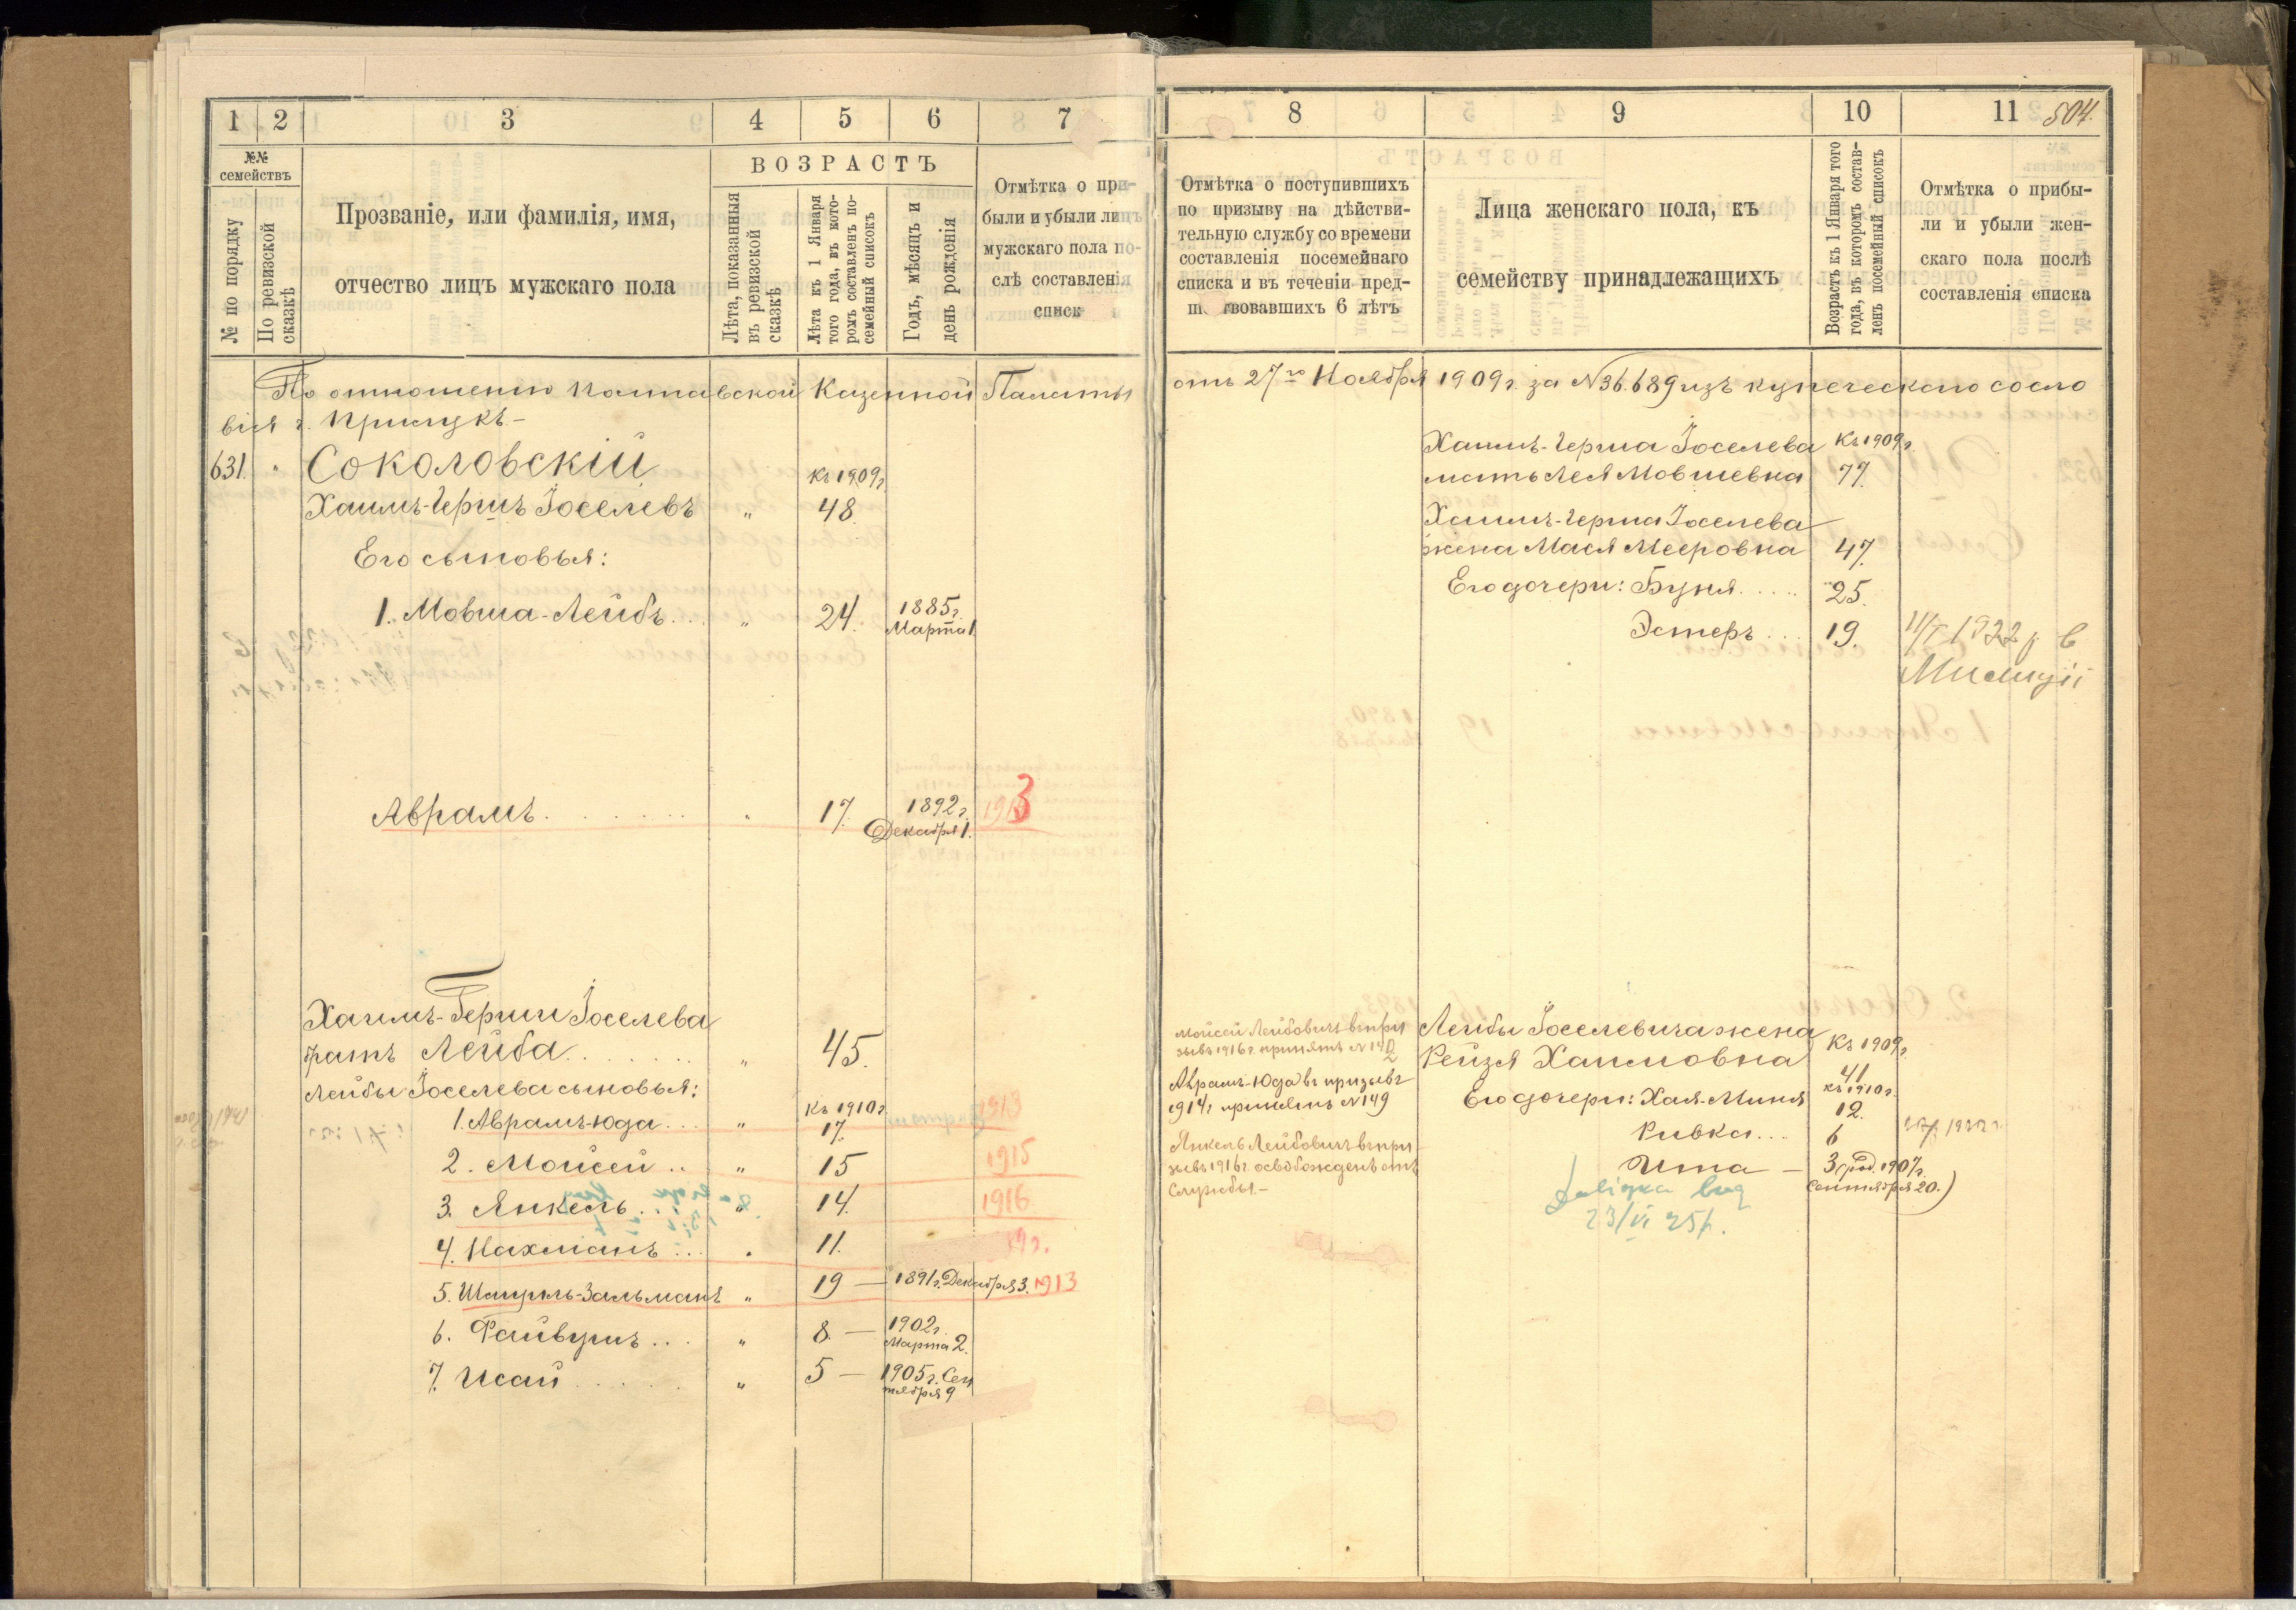 1 2 3 4 5 6 7
№№ семействъ
№ по порядку
По ревизской сказкѣ
Прозваніе, или фамилія, имя,
отчество лицъ мужскаго пола
ВОЗРАСТЪ
Лѣта, показанныя
въ ревизской
сказкѣ
Лѣта къ 1 Января
того года, въ кото-
ромъ составленъ по-
семейный списокъ
Годъ, мѣсяцъ и
день рожденія
Отмѣтка о при-
были и убыли лицъ
мужскаго пола по-
слѣ составленія
списк
По отношенію Полтавской Казенной Палаты
вія г. Прилукъ–
631. Соколовскій
Къ 1909 г.
Хаимъ-Гершъ Іоселевъ " 48.
Его сыновья:
1. Мовша-Лейбъ... " 24. 1885 г.
Марта 1.
Аврамъ. . . . . . . 17. 1892 г. 1913
Декабря 1.
Хаимъ-Герши Іоселева
братъ Лейба. . . . . . . " 45.
Лейбы Іоселева сыновья:
Къ 1910 г.
1. Аврамъ-Юда... " 17. 1913
2. Мойсей .. " 15 1915
3. Янкель... " 14. 1916
4. Нахманъ... 11.
5. Шмуль-Зальманъ " 19 — 1891 г. Декабря 3. 1913
6. Файвушъ... " 8. — 1902 г.
Марта 2.
7. Исай. . . . . . " 5 — 1905 г. Сен
тября 9
8 9 10 11 504.
Отмѣтка о поступившихъ
по призыву на дѣйстви-
тельную службу со времени
составленія посемейнаго
списка и въ теченіи пред-
ш твовавшихъ 6 лѣтъ
Лица женскаго пола, къ
семейству принадлежащихъ
Возрастъ къ 1 Января того
года, въ которомъ состав-
ленъ посемейный списокъ
Отмѣтка о прибы-
ли и убыли жен-
скаго пола послѣ
составленія списка
отъ 27го Ноября 1909 г. за № 36.689 изъ купеческаго сосло
Хаимъ-Герша Іоселева Къ 1909 г.
мать Лея Мовшевна 77.
Хаимъ-Герша Іоселева
жена Мася Мееровна 47.
Его дочери: Буня..... 25.
Эстеръ... 19. 1922 р в
Милиції
Мойсей Лейбовичъ въ при
зывъ 1916 г. принятъ №
Аврамъ-Юда въ призывъ
1914 г принятъ № 149
Янкель Лейбовичъ въ при
зывъ 1916 г. освобожденъ отъ
службы.–
Лейбы Іоселевича жена
Рейзя Хаимовна Къ 1909 г.
41
Къ 1910 г.
Его дочери: Хая-Миня 12.
Ривка... 6
Ита — 3 (род. 1907 г.
Сентября 20.)
23/VI 25 р.